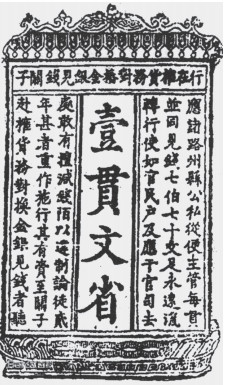 行在榷貨務對椿金銀見錢關子
應諸路州縣公私從便主管每貫
並同見錢七伯七十文足永遠流
轉行使如官民戶及應干官司去
壹貫文省
處敢有擅減錢陌以違制論徒貳
年甚者重作施行其有賫至關子
赴榷貨務對換金銀見錢者聽